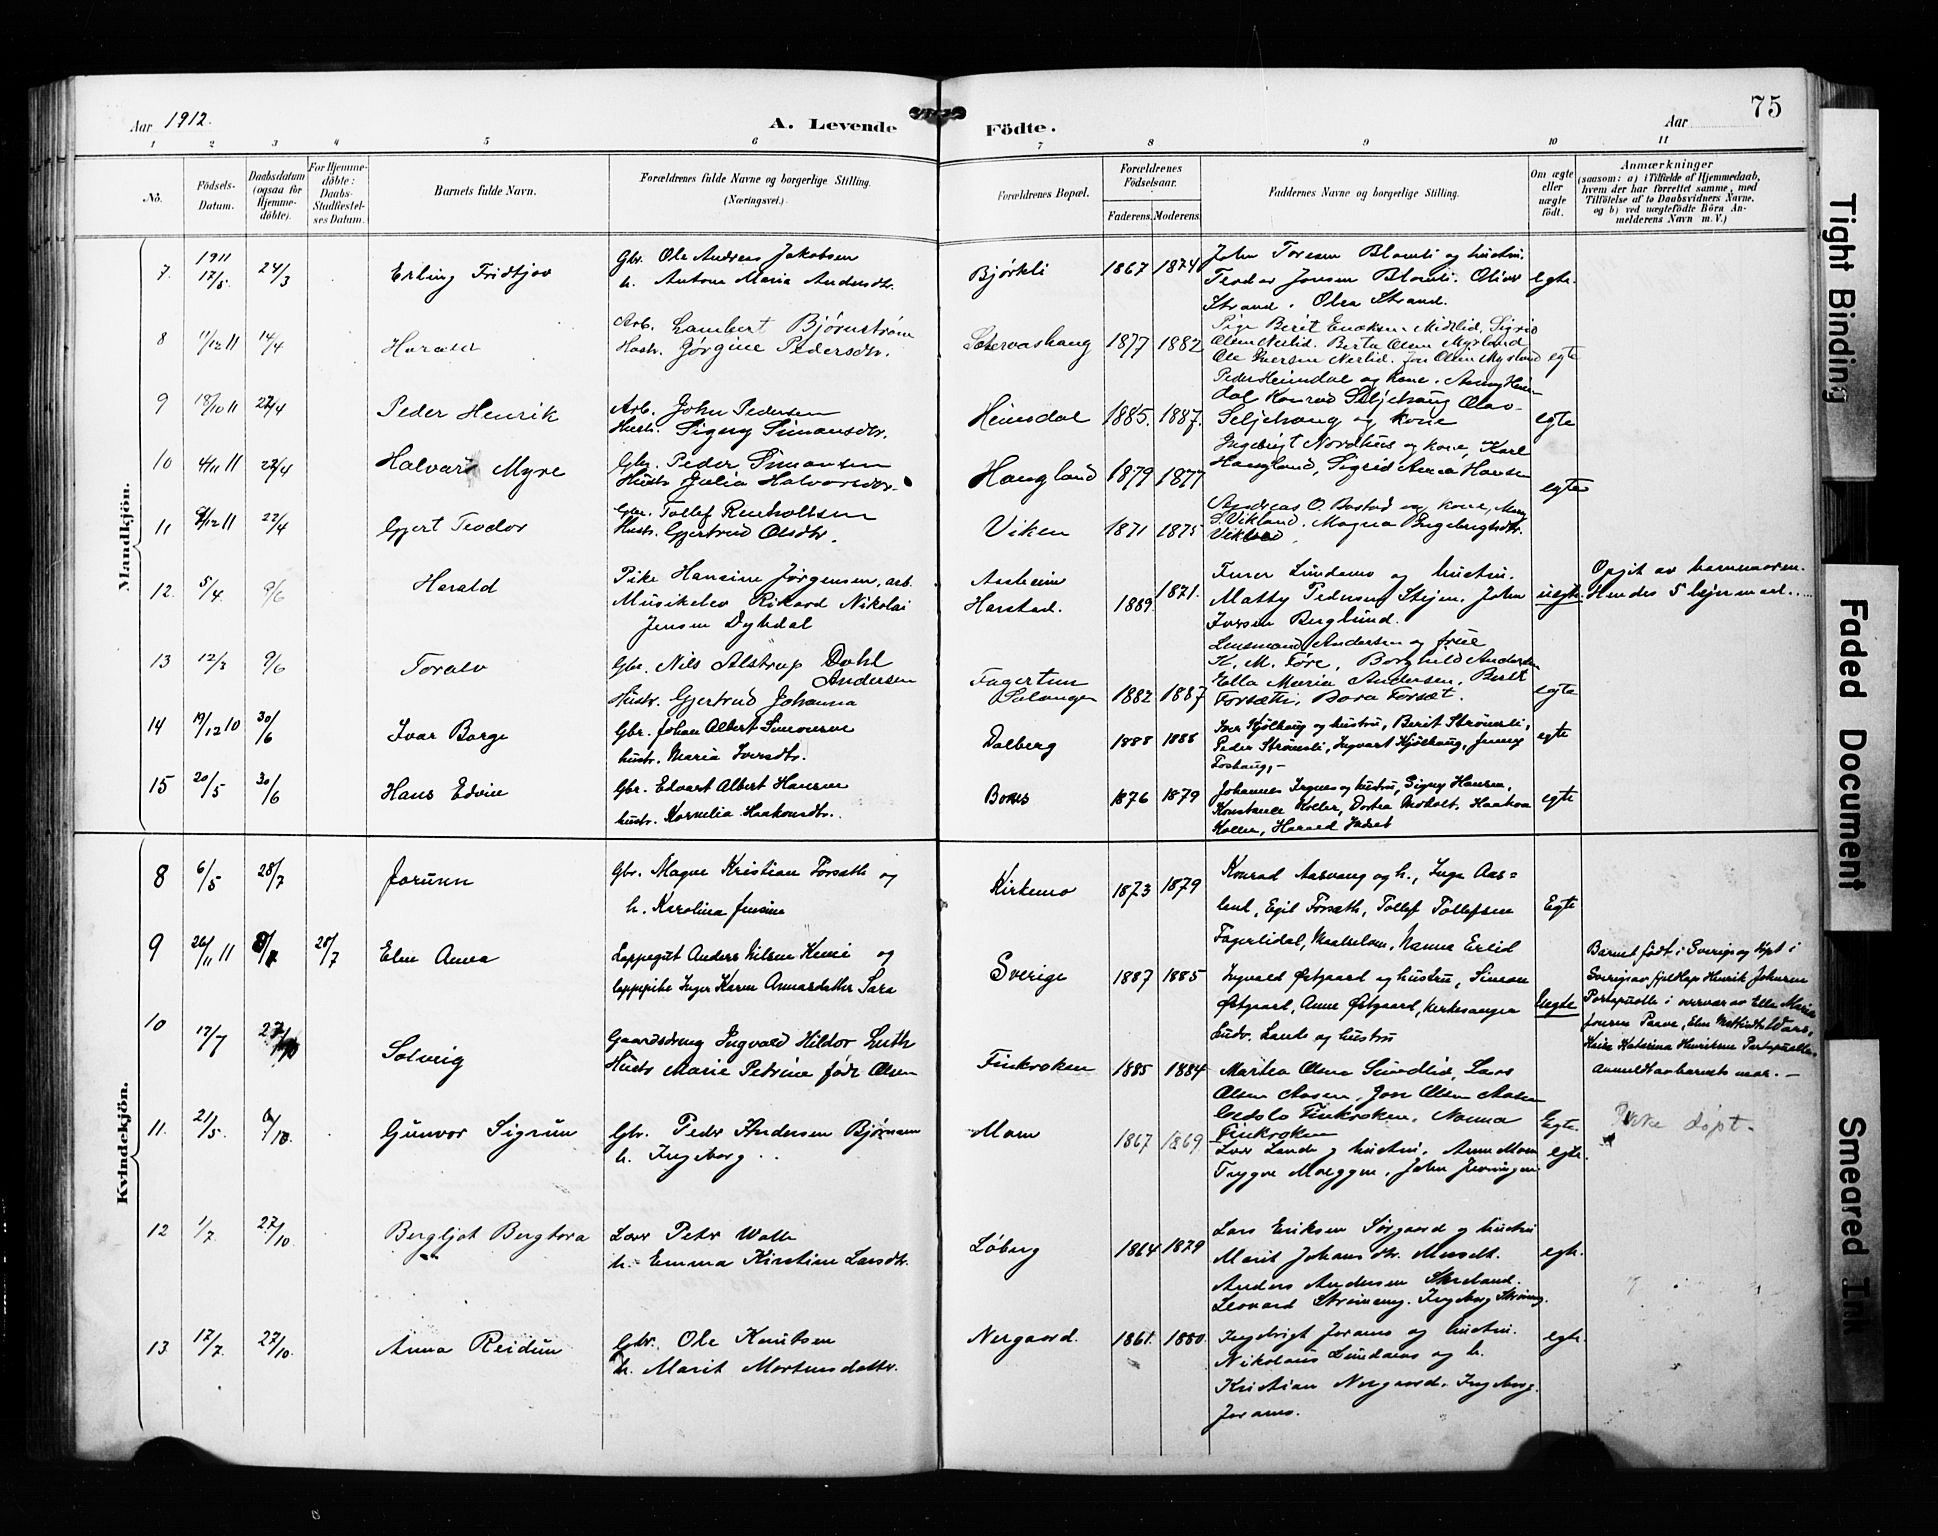 Aar 1912.
A. Levende Födte.
Aar
75
1 2 3 4 5 6 7 8 9 10 11
No.
Födsels-Datum.
Daabsdatum (ogsaa for Hjemme-döbte).
For Hjemme-döbte: Daabs-Stadfæstel-ses Datum.
Barnets fulde Navn.
Forældrenes fulde Navne og borgerlige Stilling. (Næringsvei.)
Forældrenes Bopæl.
Forældrenes Födselsaar.
Faderens. Moderens.
Faddernes Navne og borgerlige Stilling.
Om ægte eller uægte født.
Anmærkninger
(saasom: a) i Tilfælde af Hjemmedaab, hvem der har forrettet samme, med Tilföielse af to Daabsvidners Navne, og b) ved uægtefödte Börn An-melderens Navn m. V.)
Mandkjön.
7. 1911 17/5. 24/3 Erling Fridtjov
Gbr. Ole Andreas Jakobsen
h. Antona Maria Andersdtr.
Bjørkli 1867 1874
John Toresen Blomli og hustru.
Teodor Jensen Blomli. Oliver
Strand. Olea Strand.
egte.
8 11/12 11 14/4 Harald
Arb. Lambert Bjørnstrøm
Hustr. Jørgine Pedersdtr.
1877 1882
Pige Berit Enoksen Midtlid, Sigrid
Olsen Nerlid. Berta Olsen Mysland
Ole Iversen Nerlid. Jon Olsen Mysland
egte
9 18/10 11 22/4 Peder Henrik
Arb. John Pedersen
Hustr. Signy Simonsdtr.
Heimdal 1885. 1887.
Peder Heimdal og kone. Anny Heim
dal Konrad Seljehaug Olav
Seljehaug og kone
egte
10 4/11 11 22/4 Halvard Myre
Gbr. Peder Simonsen
Hustr Julia Halvorsdtr.
Haugland 1879 1877
Ingebrigt Nordhus og kone, Karl
Haugland, Sigrid Anna Hansen
egte
11 8/12 11 22/4 Gjert Teodor
Gbr. Tollef Renholtsen
Hustr. Gjertrud Olsdtr.
Viken 1871 1875
Andreas O. Bostad og kone, Mary
S. Vikland. Magna Ingebrigtsdtr.
Vikland.
12. 5/4. 9/6 Harald
Pike Hansine Jørgensen, arb.
Musikelev Rikard Nikolai
Jensen Dyhdal
Aasheim
Harstad. 1889. 1871.
Furer Lundamo og hustru.
Matty Pedersen Stejen. John
Iversen Berglund.
uegte.
Opgit av barnemoren.
Hendes 5 leiermaal.
13 12/3 9/6 Toralv
Gbr. Nils Alstrup Dahl
Andersen
Hustr. Gjertrud Johanna
Fagertun
Salangen 1882 1887
Lensmand Andersen og frue
K. M. Føre, Borghild Andersen
Ella Maria Andersen, Berit
Forsæth, Dora Forsæt.
egte
14 19/12 10 30/6 Ivar Borge
Gbr. Johan Albert
hustr. Maria Iversdtr.
Dalberg 1888 1888
Iver Kjølhaug og hustru, Berit Strømsli,
Peder Strømsli, Ingvart Kjølhaug, Jenny
Foshaug,-
egte
15 20/5 30/6 Hans Edvin
Gbr. Edvart Albert Hansen
hustr. Kornelia Haakonsdtr.
Bones 1876 1879
Johannes Ingnes og hustru, Signy Hansen,
Konstanse Koller, Dortea Moholt, Haakon
Koller, Harald Indset
egte
Kvindekjön.
8 6/5 28/7 Jorunn
Gbr. Magne Kristian Forsæth og
h. Karolina Jensine
Kirkemo 1873 1879
Konrad Aasvang og h., Inga Aas=
lund, Egil Forsæth, Tollef Tollefsen
Egte
9 26/11 11 28/7 Elen Anna
Lappegut Anders Nilsen Keini og
lappepike Inger Karen Annasdatter Sara
Sverige 1887 1885
Fagerlidal, Maalselven, Nanna Erlid
Ingvald Østgaard og hustru, Simon
Østgaard, Anne Østgaard, kirkesanger
Ludv. Lande og hustru
Uegte
Barnet født i Sverige og døpt i
Sverige av fjeldlap Henrik Johnsen
i overvær av Ella Maria
Jonsen
Katarina Henriksen
anmeldt av barnets mor. -
10 17/7 27/10 Solveig
Gaardsdreng Ingvald Hildor Luth
Hustr Marie Petrine født Olsen
Finkroken 1885 1884
Martha Olsen Sundlid, Lars
Olsen Aasen, Jon Olsen Aasen
Finkroken, Nanna
Finkroken
Egte.
11. 21/5. 6/10. Gunvor Sigrun
Gbr. Peder Andersen Bjørnmo
h. Ingeborg . .
Moen 1867 1869
Lande og hustru. Anne Moen
Trygve Moeggen. John
egte.
Ikke døpt.
12 1/7. 27/10. Bergljot Bergtora
Peter Walle
h. Emma Kirstine Larsdtr.
Løberg 1864 1879
Lars Eriksen Sørgaard og hustru
Marit Johansdtr.
Anders Andersen
Leonard Strømeng. Ingeborg Strømeng.
egte.
13 17/7. 27/10. Anna Reidun
Gbr. Ole Knutsen
h. Marit Mortensdattr.
Nergaard. 1861. 1880.
Ingebrigt Joramo og hustru.
Nikolaus Lundamo og h.
Kristian Nergaard. Ingeborg
Joramo.
egte.
Tight Binding
Faded Document
Smeared Ink